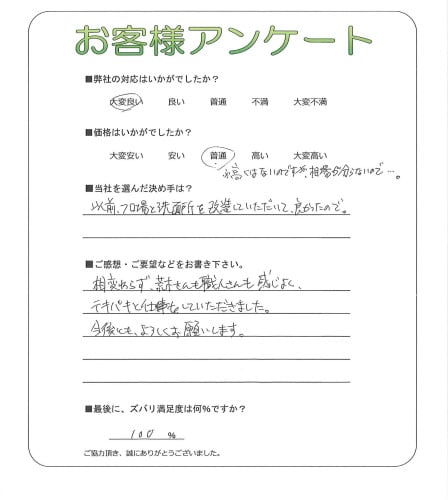 お客様アンケート
■弊社の対応はいかがでしたか?
大変良い 良い 普通 不満 大変不満
■価格はいかがでしたか?
大変安い 安い 普通 高い 大変高い
高くはないのですが、相場が分らないので…。
■当社を選んだ決め手は?
以前、フロ場と洗面所を改造していただいて、良かったので。
■ご感想・ご要望などをお書き下さい。
相変わらず、荒木さんも職人さんも感じよく、
テキパキと仕事をしていただきました。
今後とも、よろしくお願いします。
■最後に、ズバリ満足度は何%ですか?
100 %
ご協力頂き、誠にありがとうございました。